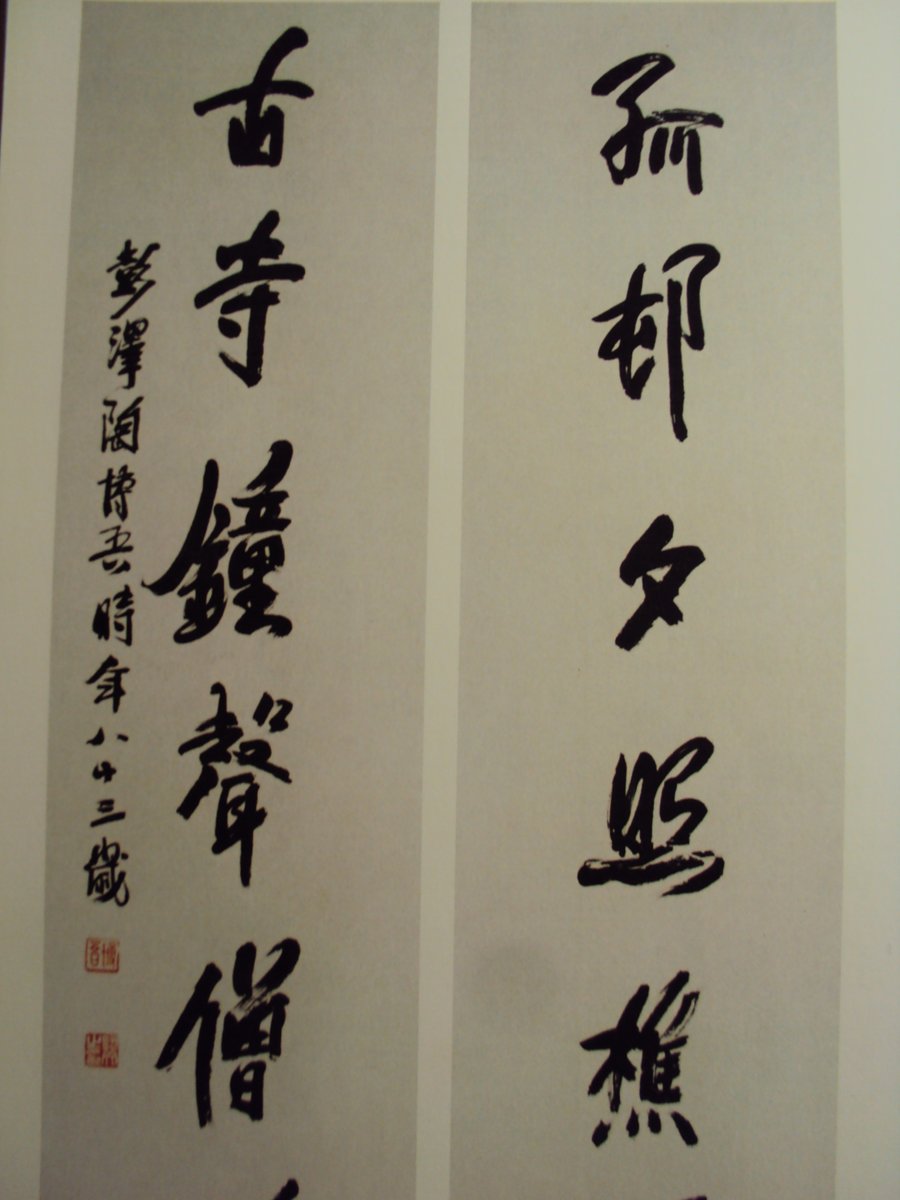 孤邨夕照樵
古寺鐘聲僧
彭澤陶博吾時年八十三歲